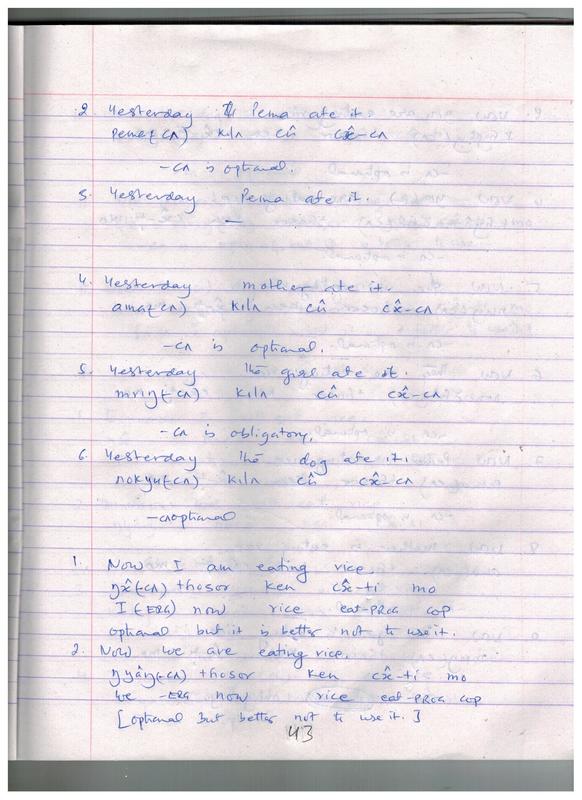 2. Yesterday Pema ate it.
Pema(-cʌ) kilʌ cû cx̂-cʌ
-cʌ is optional.
3. Yesterday Pema ate it.
—
4. Yesterday mother ate it.
ama(-cʌ) kilʌ cû cx̂-cʌ
-cʌ is optional.
5. Yesterday the girl ate it.
mriŋ(-cʌ) kilʌ cû cx̂-cʌ
-cʌ is obligatory.
6. Yesterday the dog ate it.
nokyu(-cʌ) kilʌ cû cx̂-cʌ
-cʌ optional
1. Now I am eating rice.
ŋx̂(-cʌ) thosor ken cx̂-ti mo
I (-ERG) now rice eat-PROG COP
optional but it is better not to use it.
2. Now we are eating rice.
ŋyâŋ(-cʌ) thosor ken cx̂-ti mo
we -ERG now rice eat-PROG COP
[optional but better not to use it.]
43